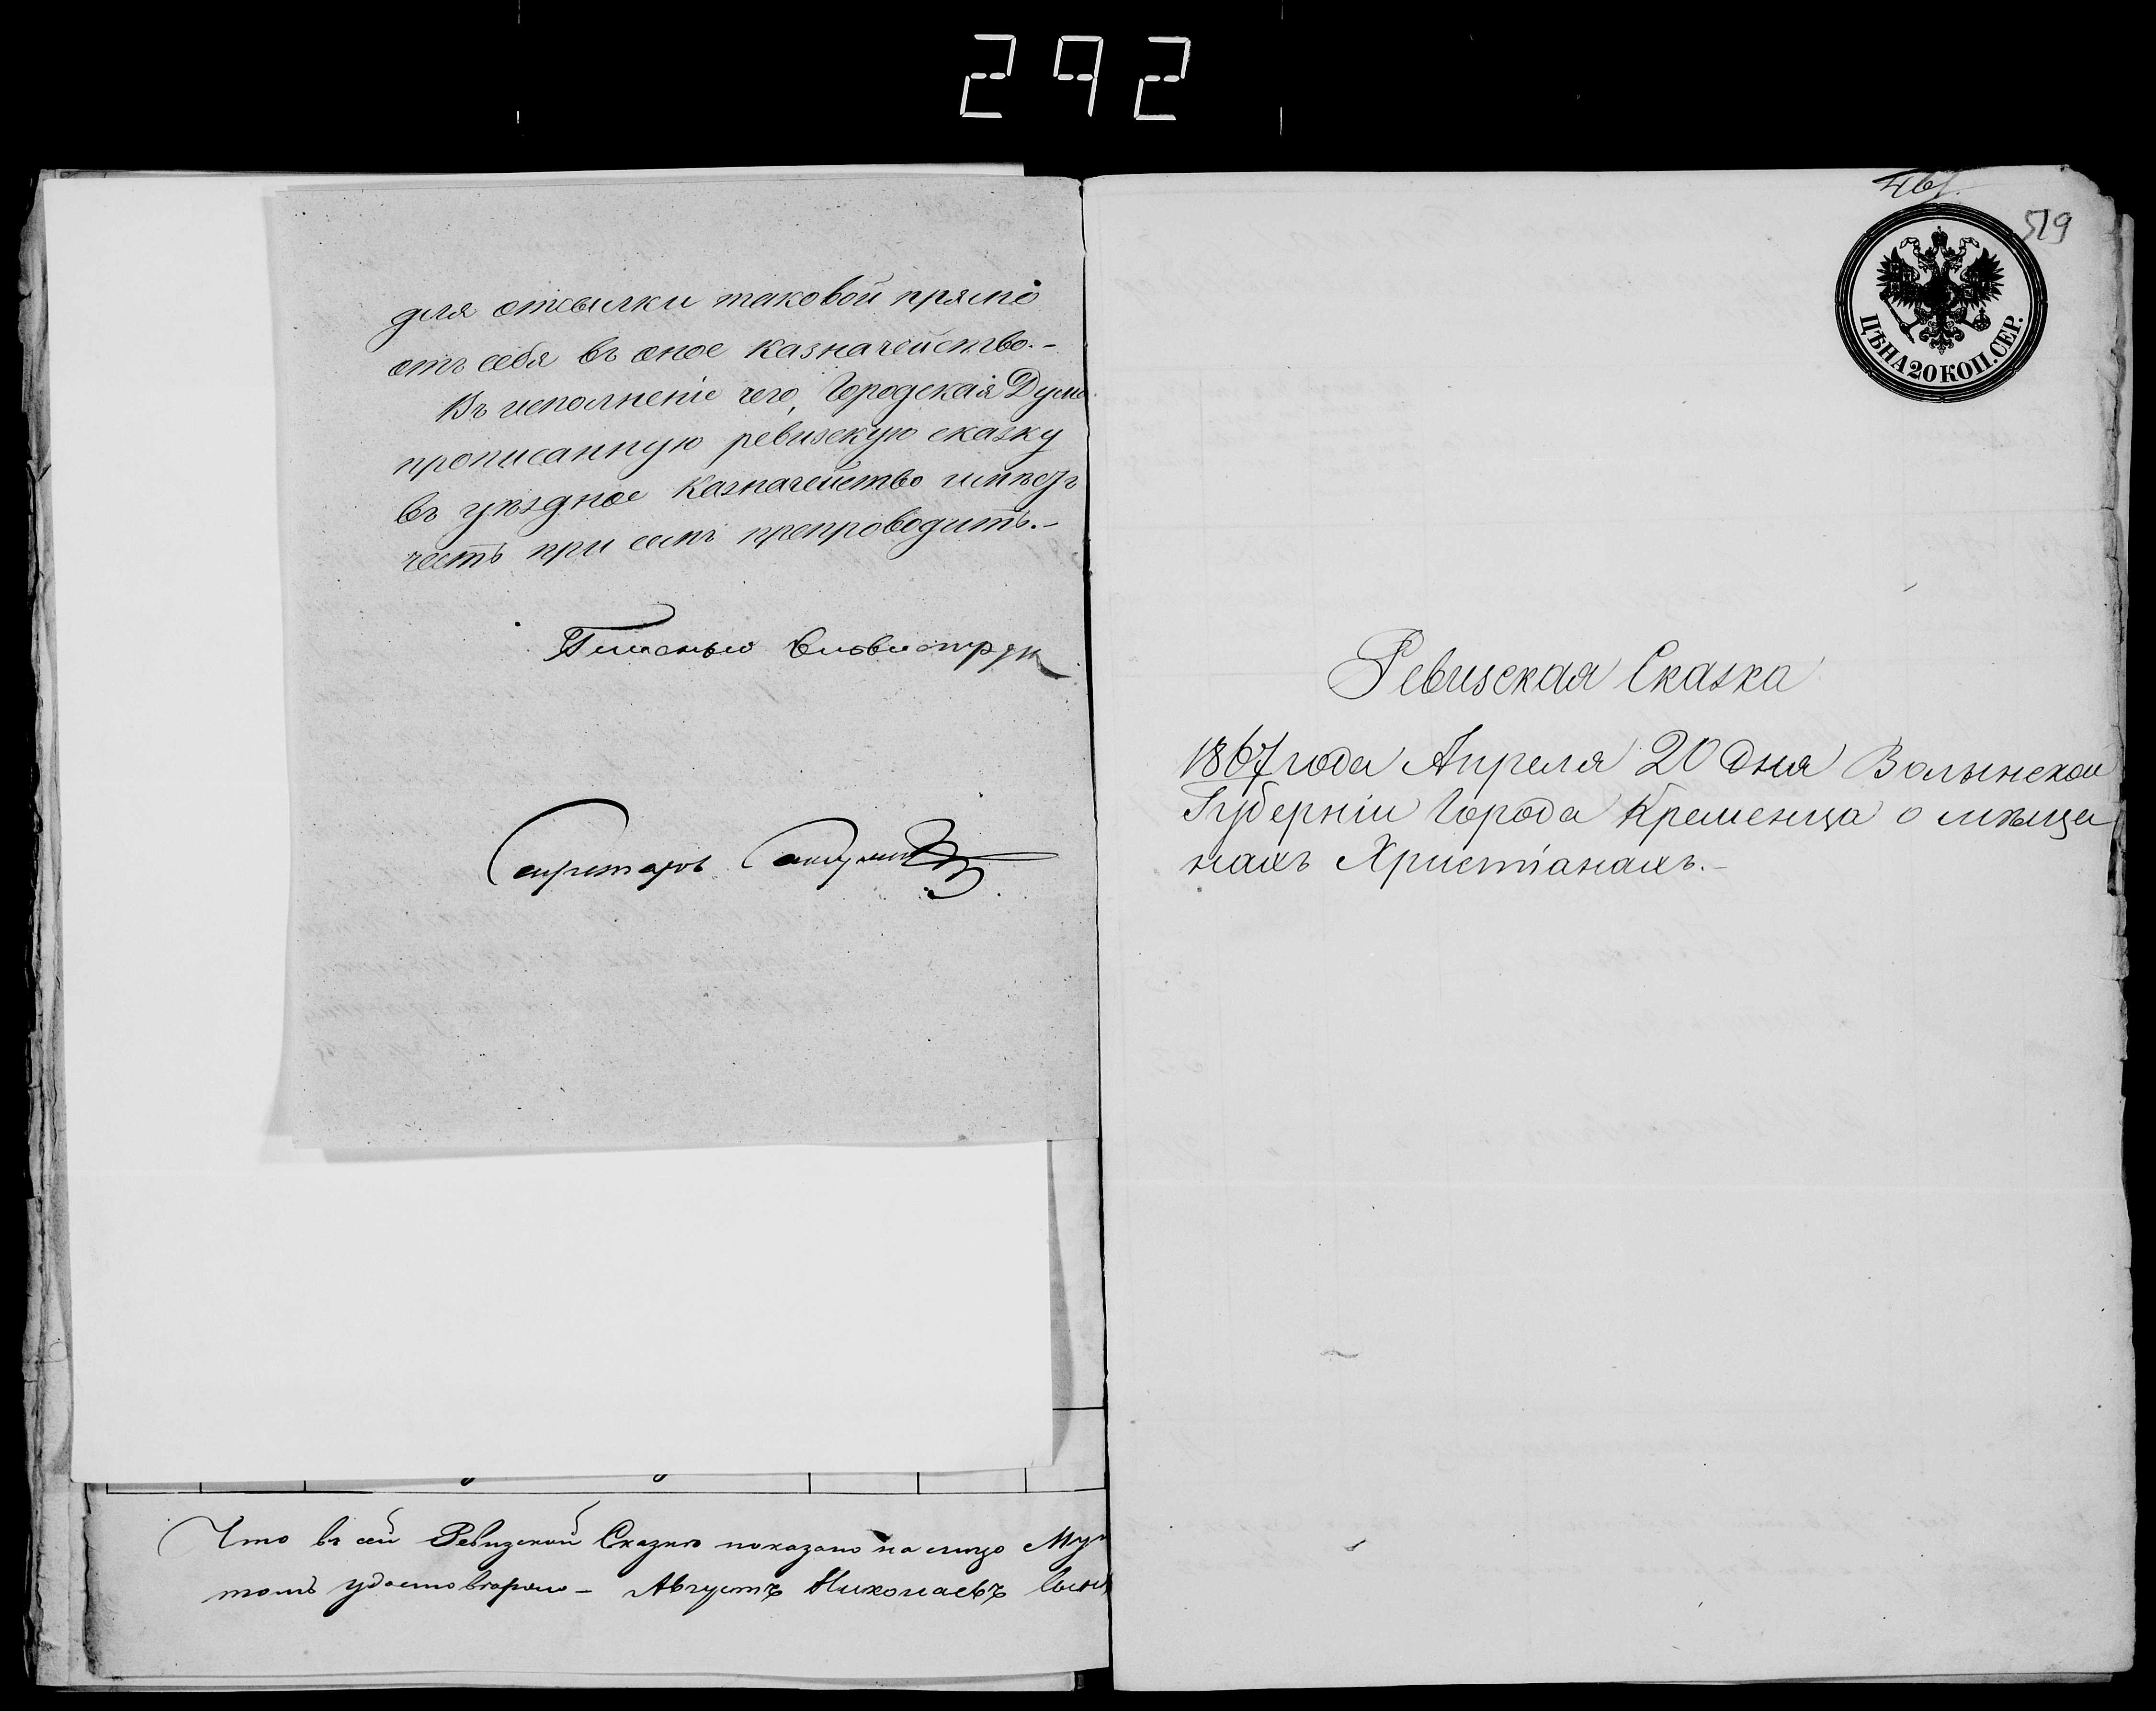 292
для отсылки таковой прямо
отъ себя въ оное казначейство.-
Въ исполненіе чего, Городская Дума
прописанную ревизскую сказку
въ уѣздное казначейство имѣетъ
честь при семъ препроводить.-
Секретарь
Что въ сей Ревизской Сказкѣ показано на лицо Му
томъ удостовѣряю - Августъ Николаевъ
519
ЦѢНА 20 КОП. СЕР.
Ревизская Сказка
1867 года Апреля 20 дня Волынской
Губерніи Города Кременца о мѣща
нахъ Христіанахъ.-